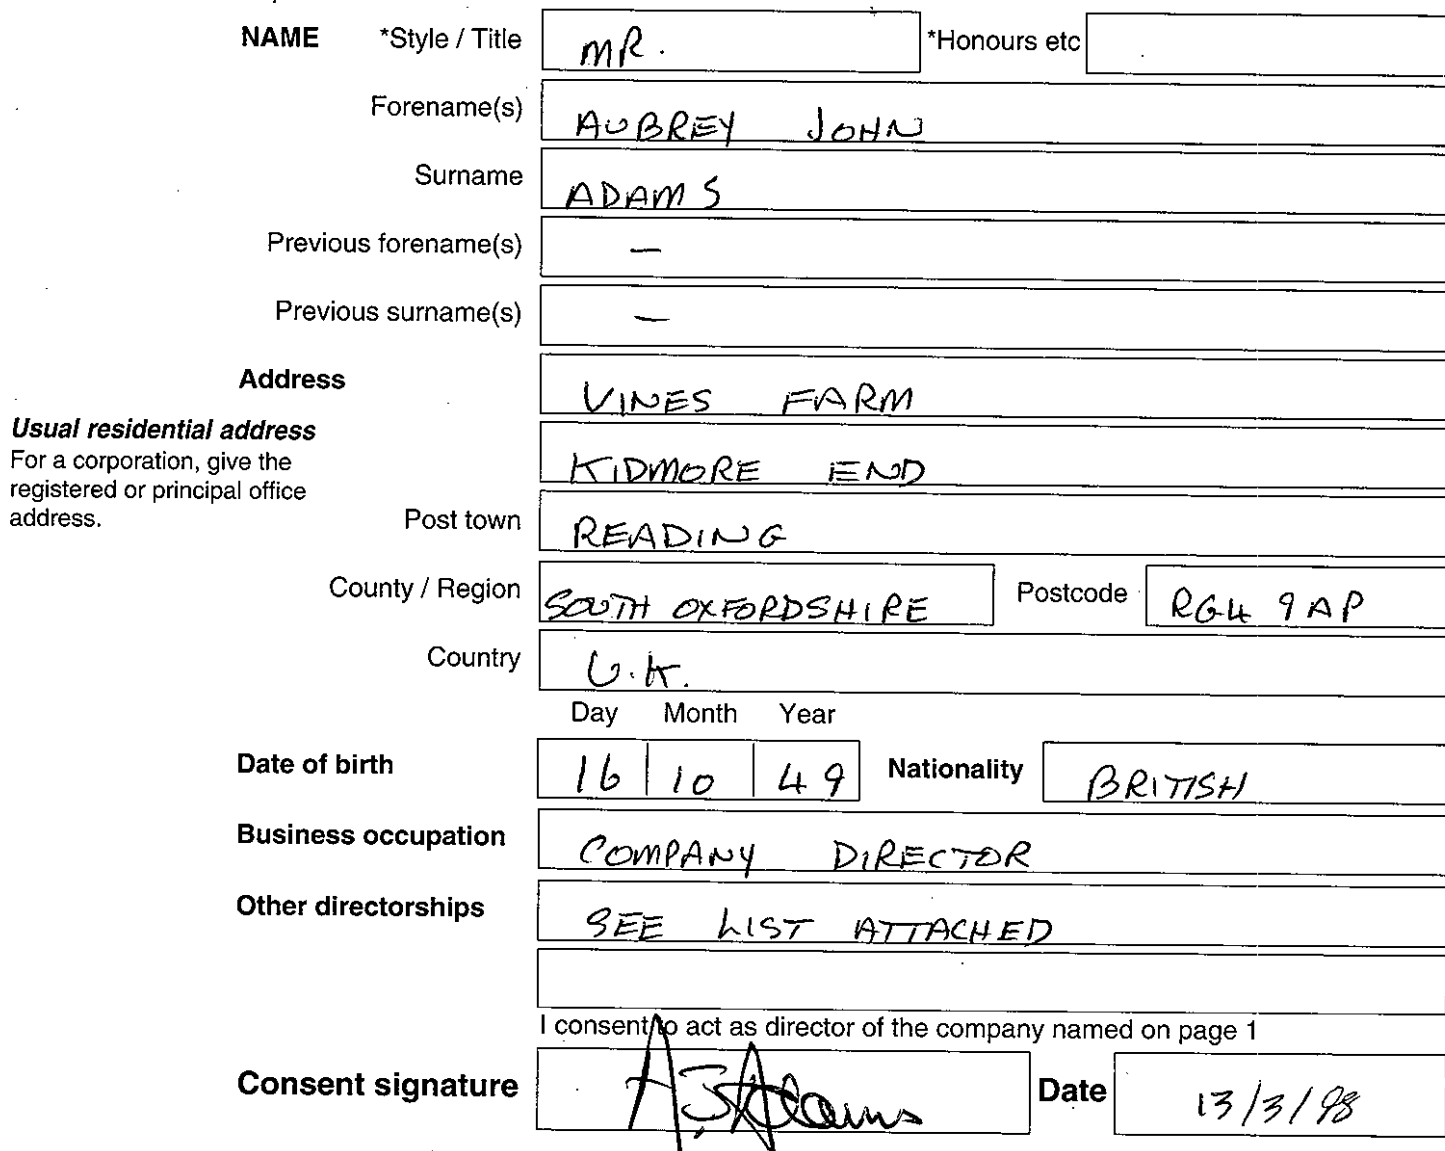 NAME *Style / Title MR. *Honours etc
Forename(s) AUBREY JOHN
Surname ADAMS
Previous forename(s) —
Previous surname(s) —
Address VINES FARM
Usual residential address
For a corporation, give the
registered or principal office
address.
KIDMORE END
Post town READING
County / Region SOUTH OXFORDSHIRE Postcode RG4 9AP
Country U.K.
Day Month Year
Date of birth 16 10 49 Nationality BRITISH
Business occupation COMPANY DIRECTOR
Other directorships SEE LIST ATTACHED
I consent to act as director of the company named on page 1
Consent signature A J Adams Date 13/3/98